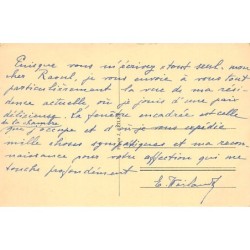 Puisque vous m'écrivez tout seul, mon
cher Raoul, je vous envoie à vous tout
particulièrement la vue de ma rési-
dence actuelle, où je jouis d'une paix
délicieuse. La fenêtre encadrée est celle
de la chambre
que j'occupe et d'où je vous expédie
mille choses sympathiques et ma recon-
naissance pour votre affection qui me
touche profondément
E.